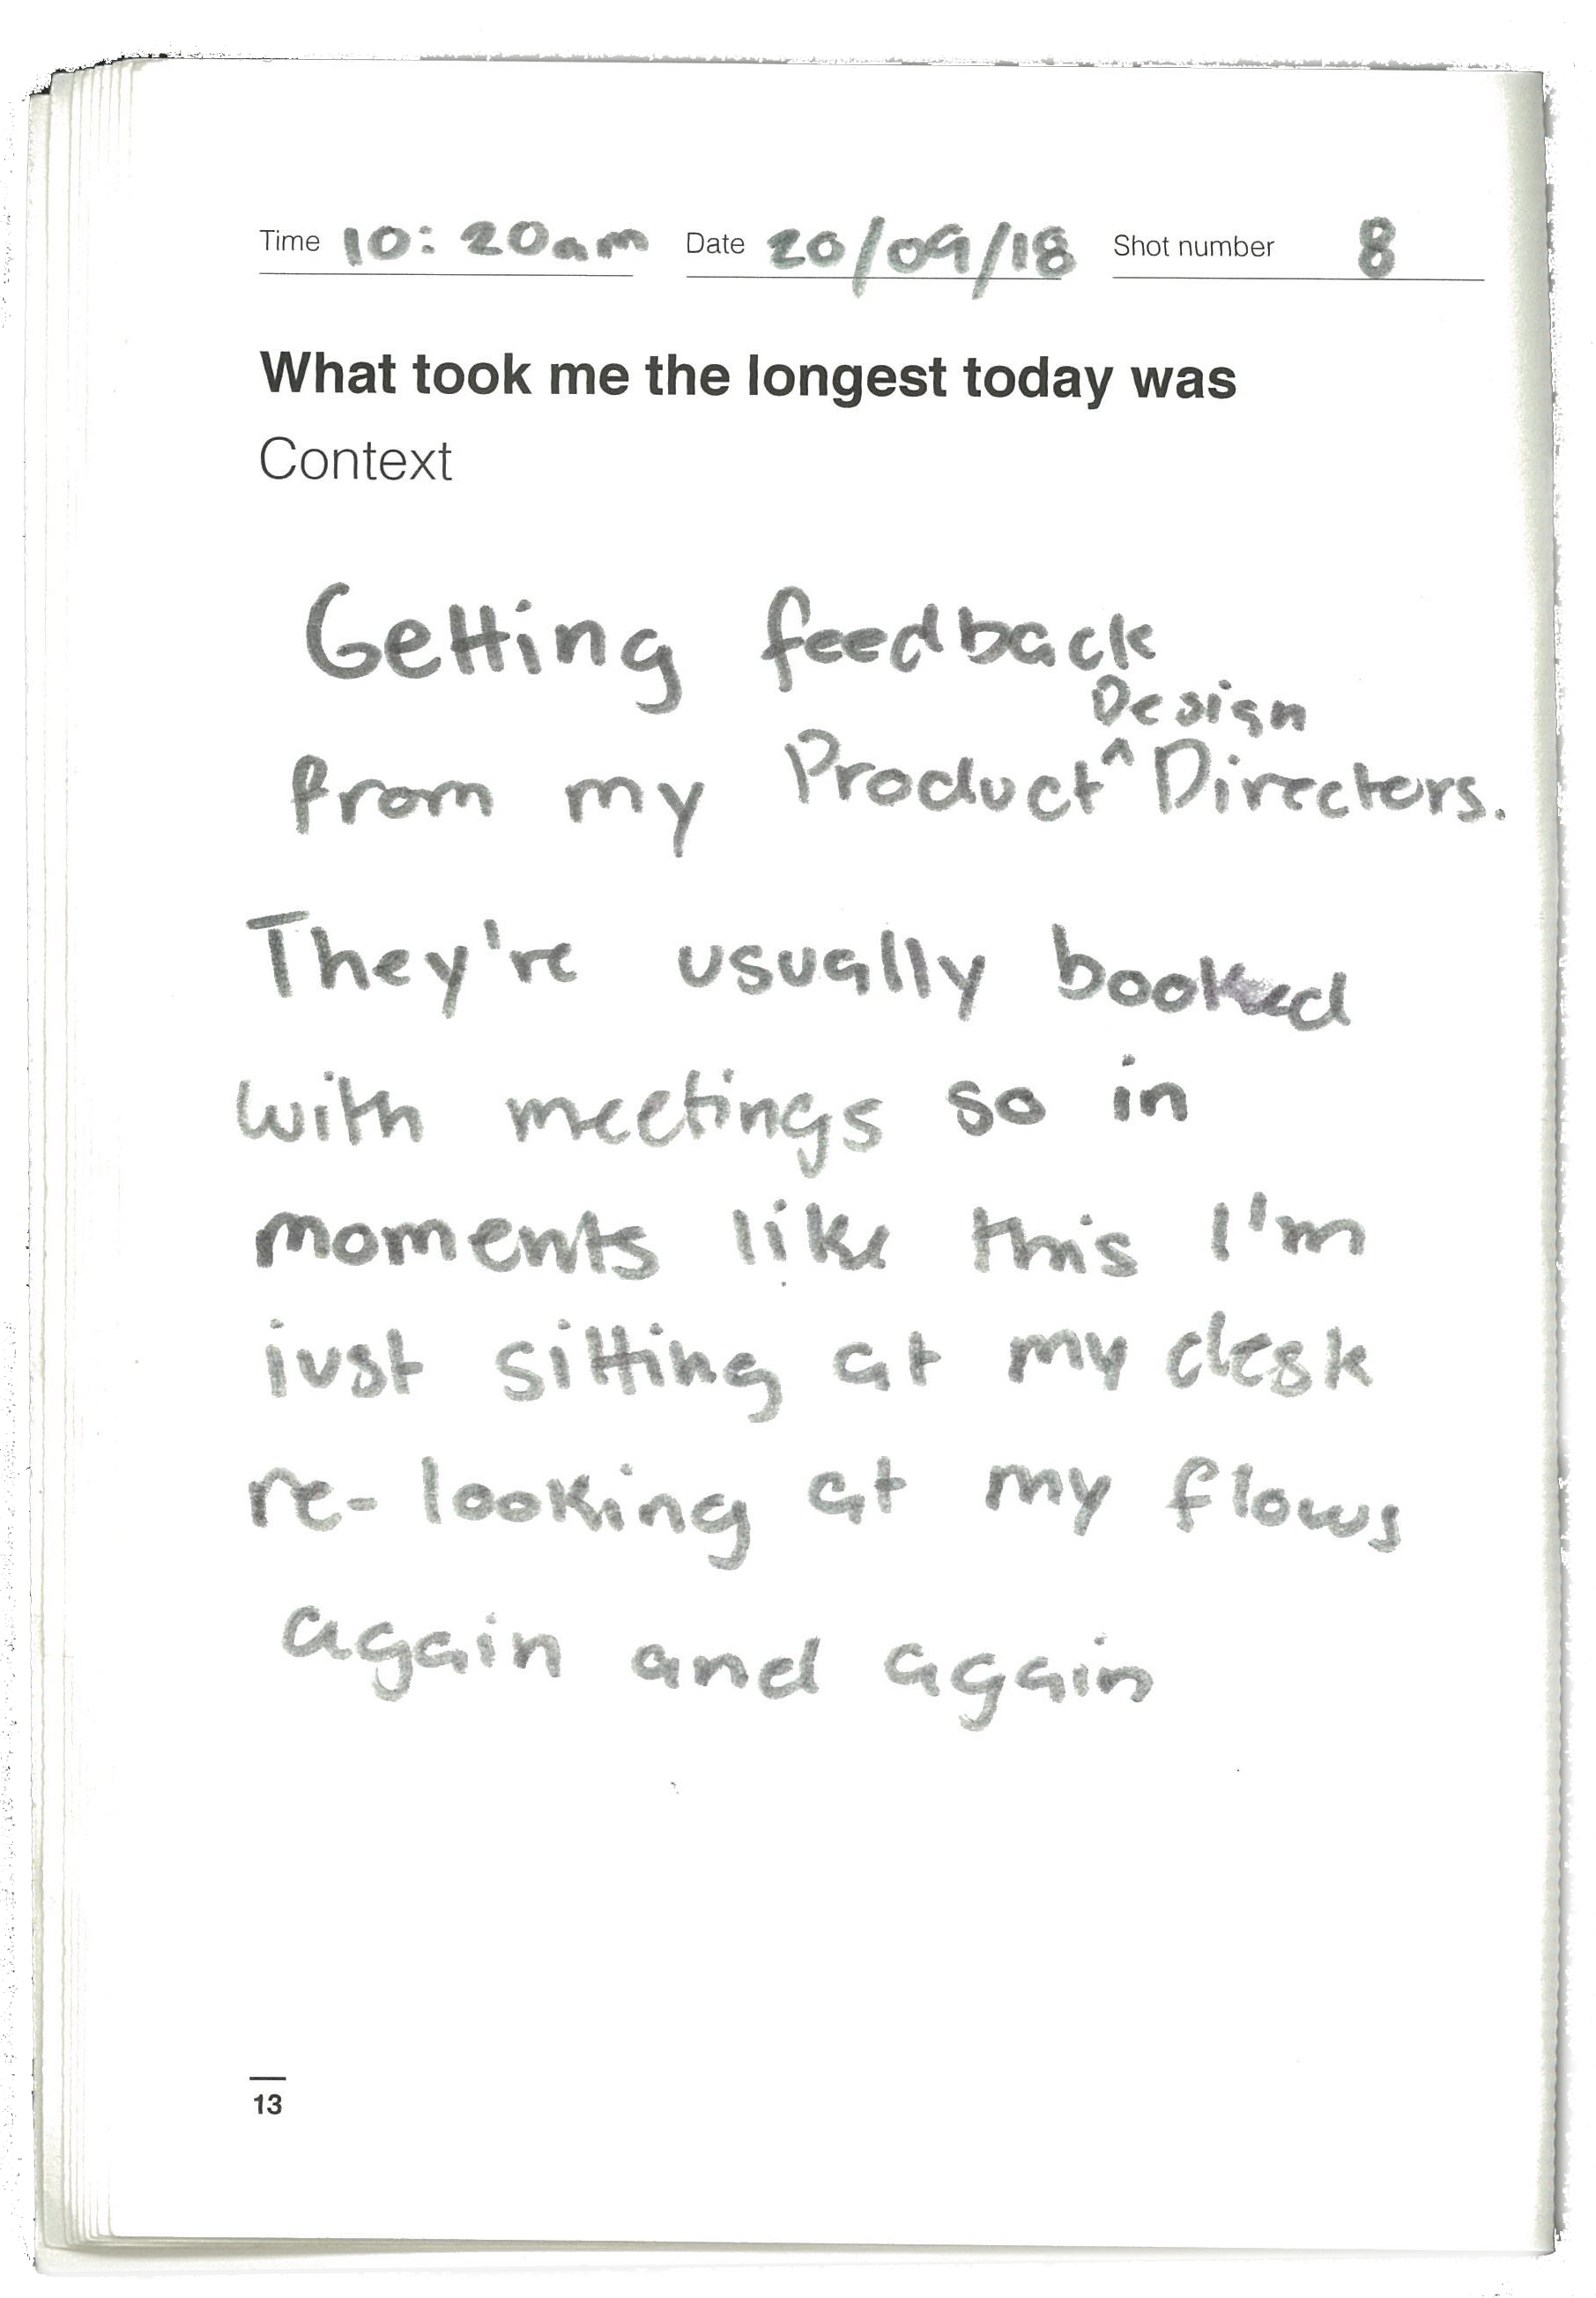 Time 10:20am Date 20/09/18 Shot number 8
What took me the longest today was
Context
Getting feedback
from my Product ^ Design Directors.
They're usually booked
with meetings so in
moments like this I'm
just sitting at my desk
re-looking at my flows
again and again
13